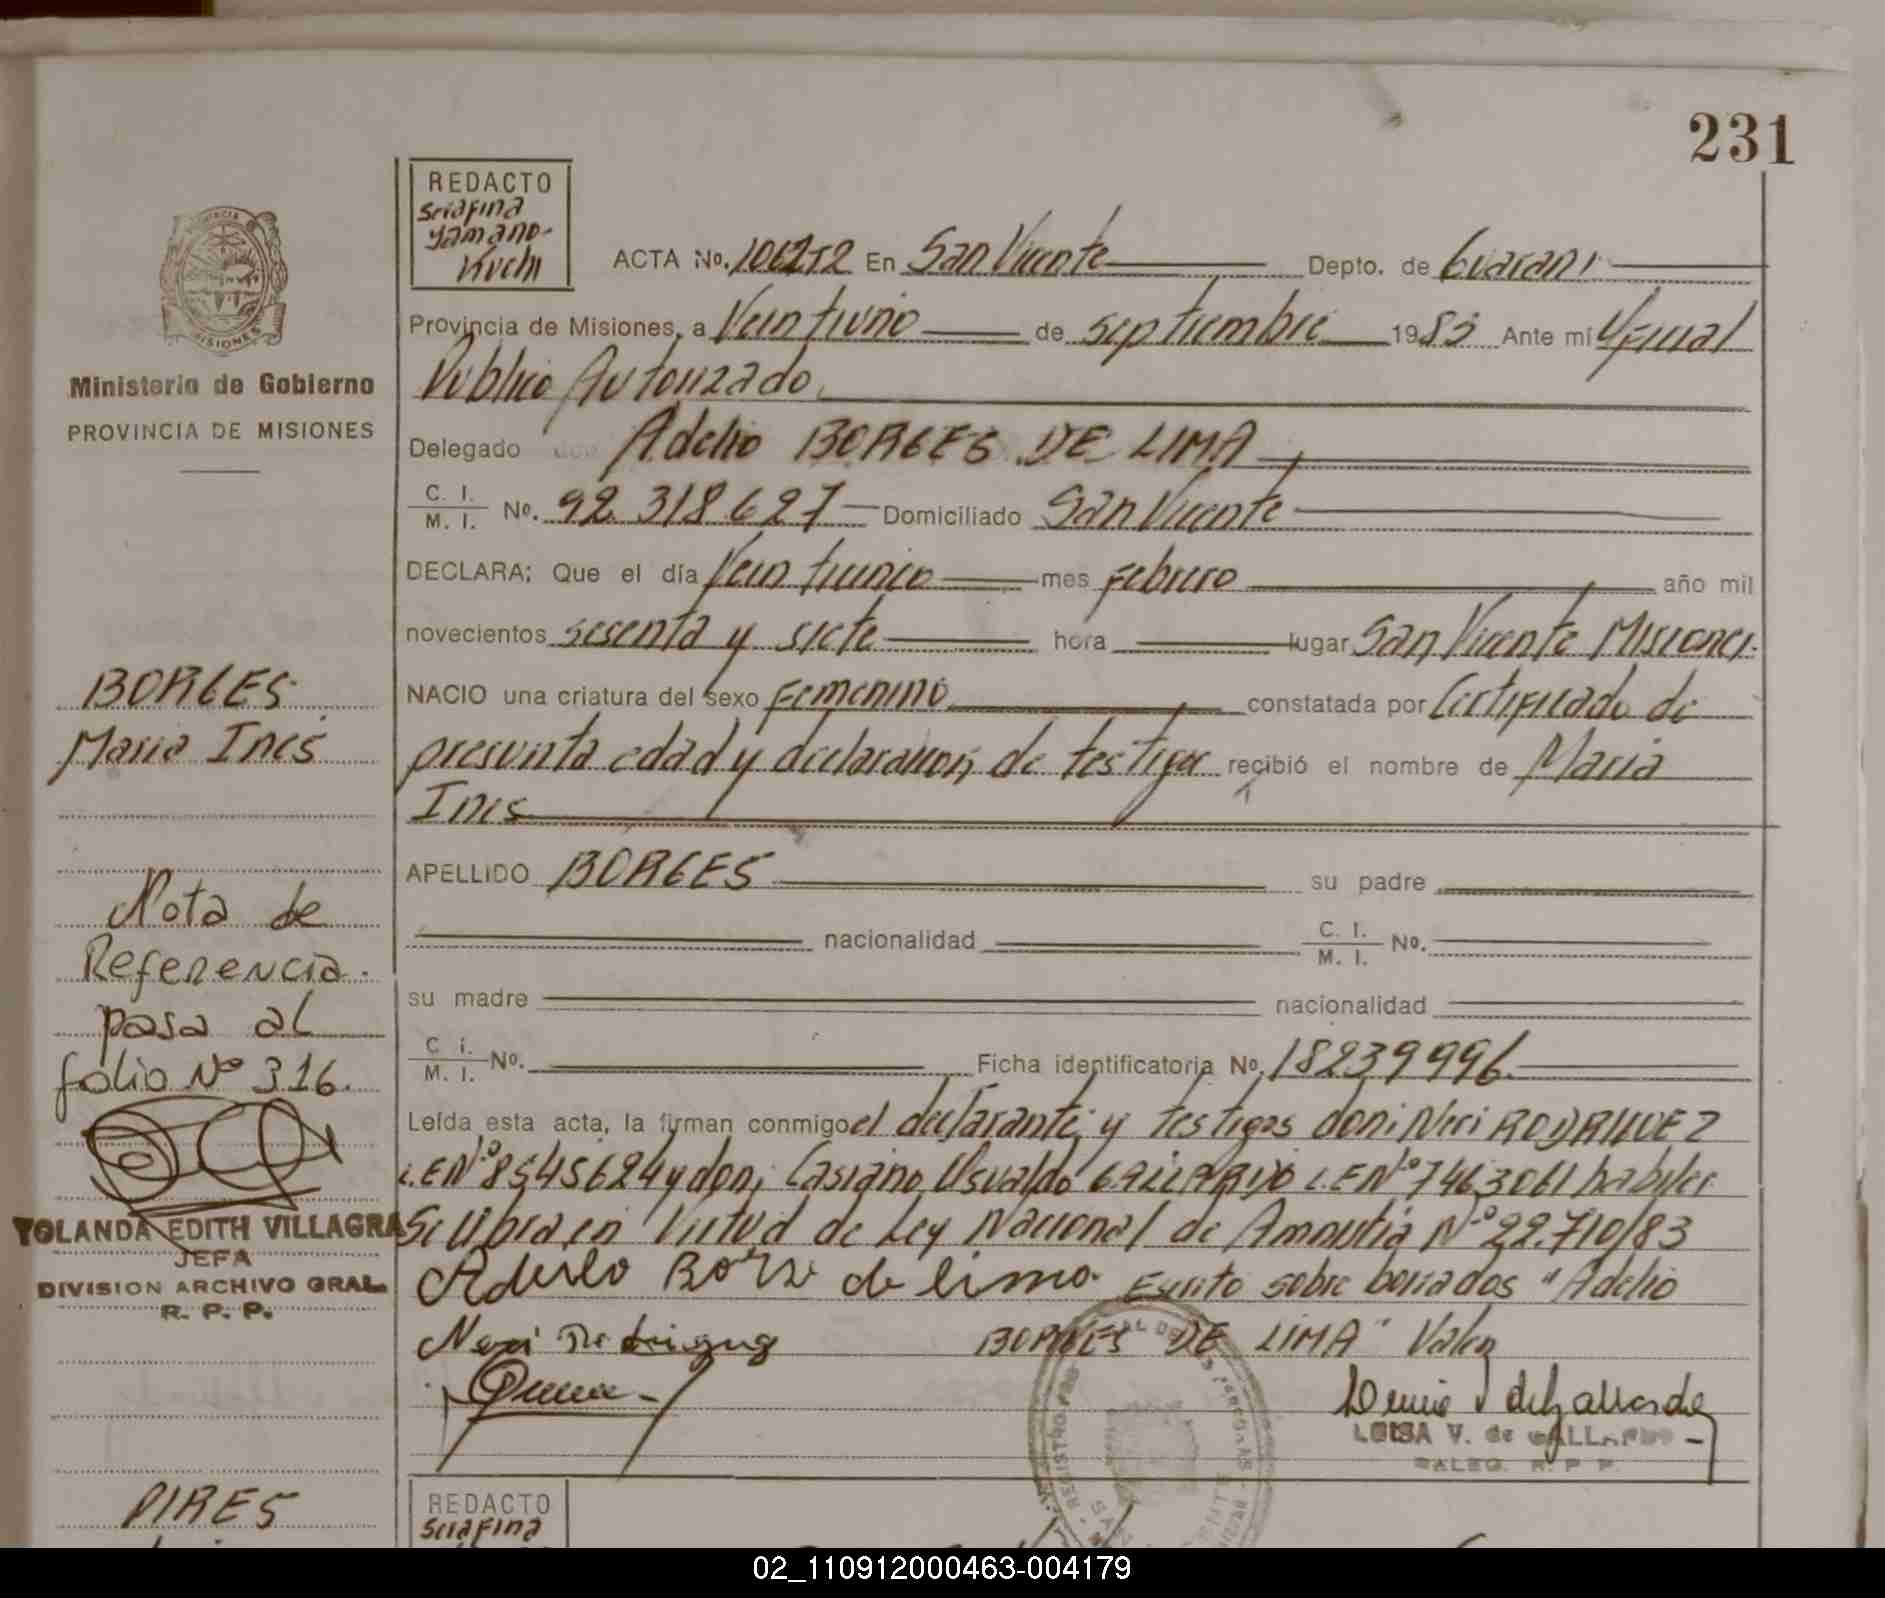 231
REDACTO
Serafina
Yamano-
Kuchi
ACTA No. 106252 En San Vicente Depto. de Guarani
Provincia de Misiones, a Veintiuno de Septiembre 1983 Ante mí Oficial
Publico Autorizado
Delegado Adelio BORGES DE LIMA
C. I. / M. I. No. 92.318.627 Domiciliado San Vicente
DECLARA; Que el día Veinticinco mes Febrero año mil
novecientos sesenta y siete hora lugar San Vicente Misiones.
NACIO una criatura del sexo Femenino constatada por Certificado de
presunta edad y declaracion de testigos recibió el nombre de Maria
Ines
APELLIDO BORGES su padre
nacionalidad C. I. / M. I. No.
su madre nacionalidad
C. i. / M. I. No. Ficha identificatoria No. 18239996
Leída esta acta, la firman conmigo el declarante y testigos don: Neri RODRIGUEZ
L.E Nº 8545624 y don: Casiano Osvaldo GALLARDO L.E Nº 7463061 habiles
Se libra en Virtud de Ley Nacional de Amnistia Nº 22.710/83
de lima. Escrito sobre borrados "Adelio
Neri Rodriguez BORGES DE LIMA" Vale
LUISA V. de GALLARDO
R. P. P.
Ministerio de Gobierno
PROVINCIA DE MISIONES
BORGES
Maria Ines
Nota de
Referencia.
pasa al
folio Nº 316.
YOLANDA EDITH VILLAGRA
JEFA
DIVISION ARCHIVO GRAL.
R. P. P.
PIRES
REDACTO
Serafina
02_110912000463-004179